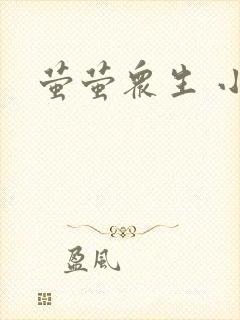 萤萤众生 小
盈風